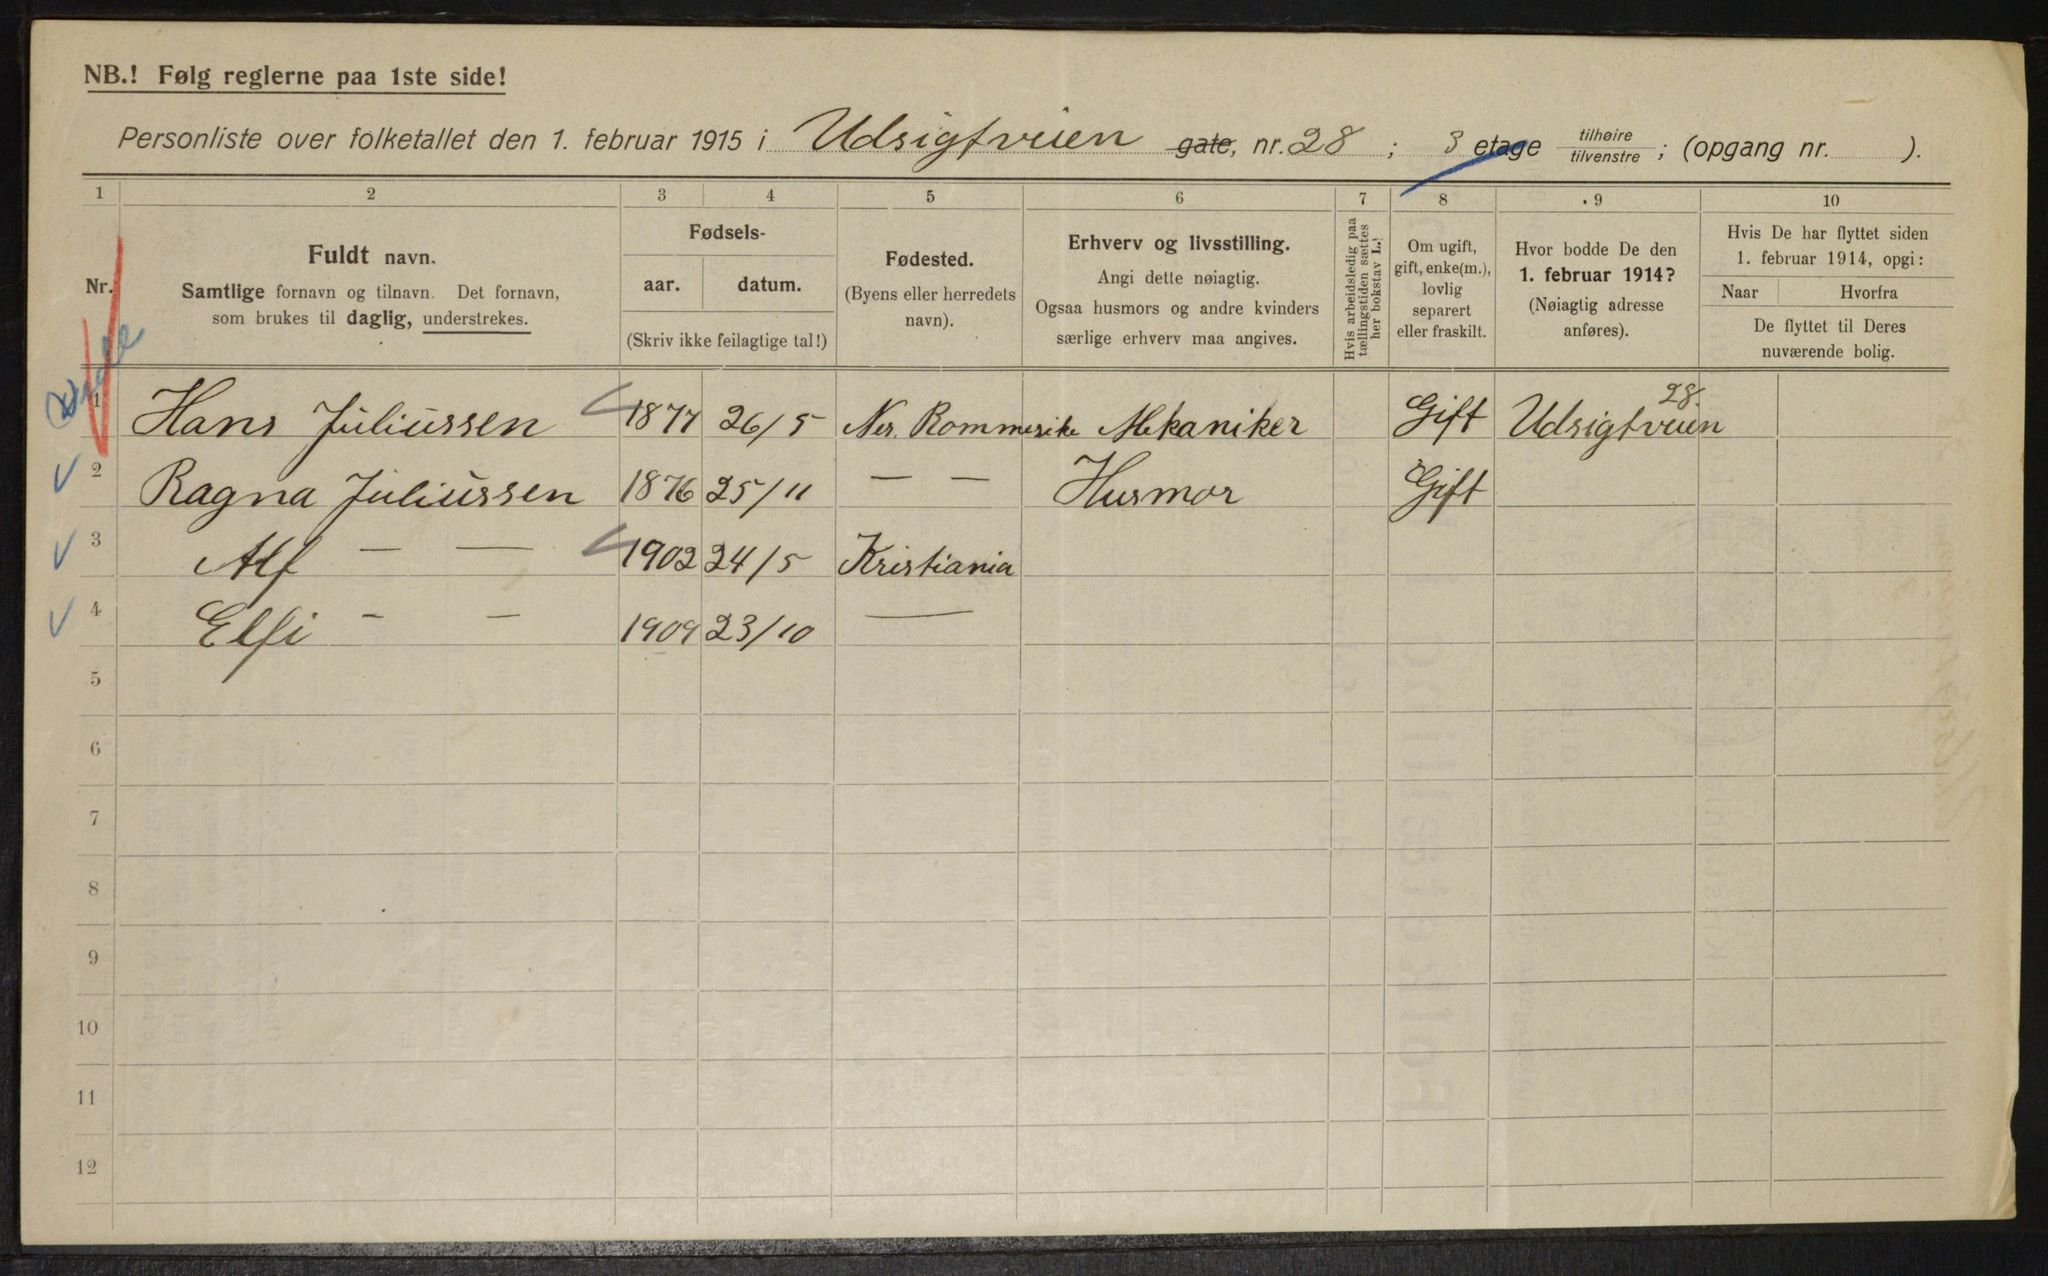 NB.! Følg reglerne paa 1ste side!
Personliste over folketallet den 1. februar 1915 i Udsigtveien gate, nr. 28 ; 3 etage tilhøire tilvenstre ; (opgang nr. ).
1 2 3 4 5 6 7 8 9 10
Nr.
Fuldt navn.
Samtlige fornavn og tilnavn. Det fornavn,
som brukes til daglig, understrekes.
Fødsels-
aar. datum.
(Skriv ikke feilagtige tal!)
Fødested.
(Byens eller herredets
navn).
Erhverv og livsstilling.
Angi dette nøiagtig.
Ogsaa husmors og andre kvinders
særlige erhverv maa angives.
Hvis arbeidsledig paa
tællingstiden sættes
her bokstav L.!
Om ugift,
gift, enke(m.),
lovlig
separert
eller fraskilt.
Hvor bodde De den
1. februar 1914?
(Nøiagtig adresse
anføres).
Hvis De har flyttet siden
1. februar 1914, opgi:
Naar Hvorfra
De flyttet til Deres
nuværende bolig.
1 Hans Juliussen 1877 26/5 Ner. Rommerike Mekaniker Gift Udsigtveien 28.
2 Ragna Juliussen 1876 25/11 — — Husmor Gift
3 Alf — — 1902 24/5 Kristiania
4 Elfi - — 1909 23/10 —
5
6
7
8
9
10
11
12